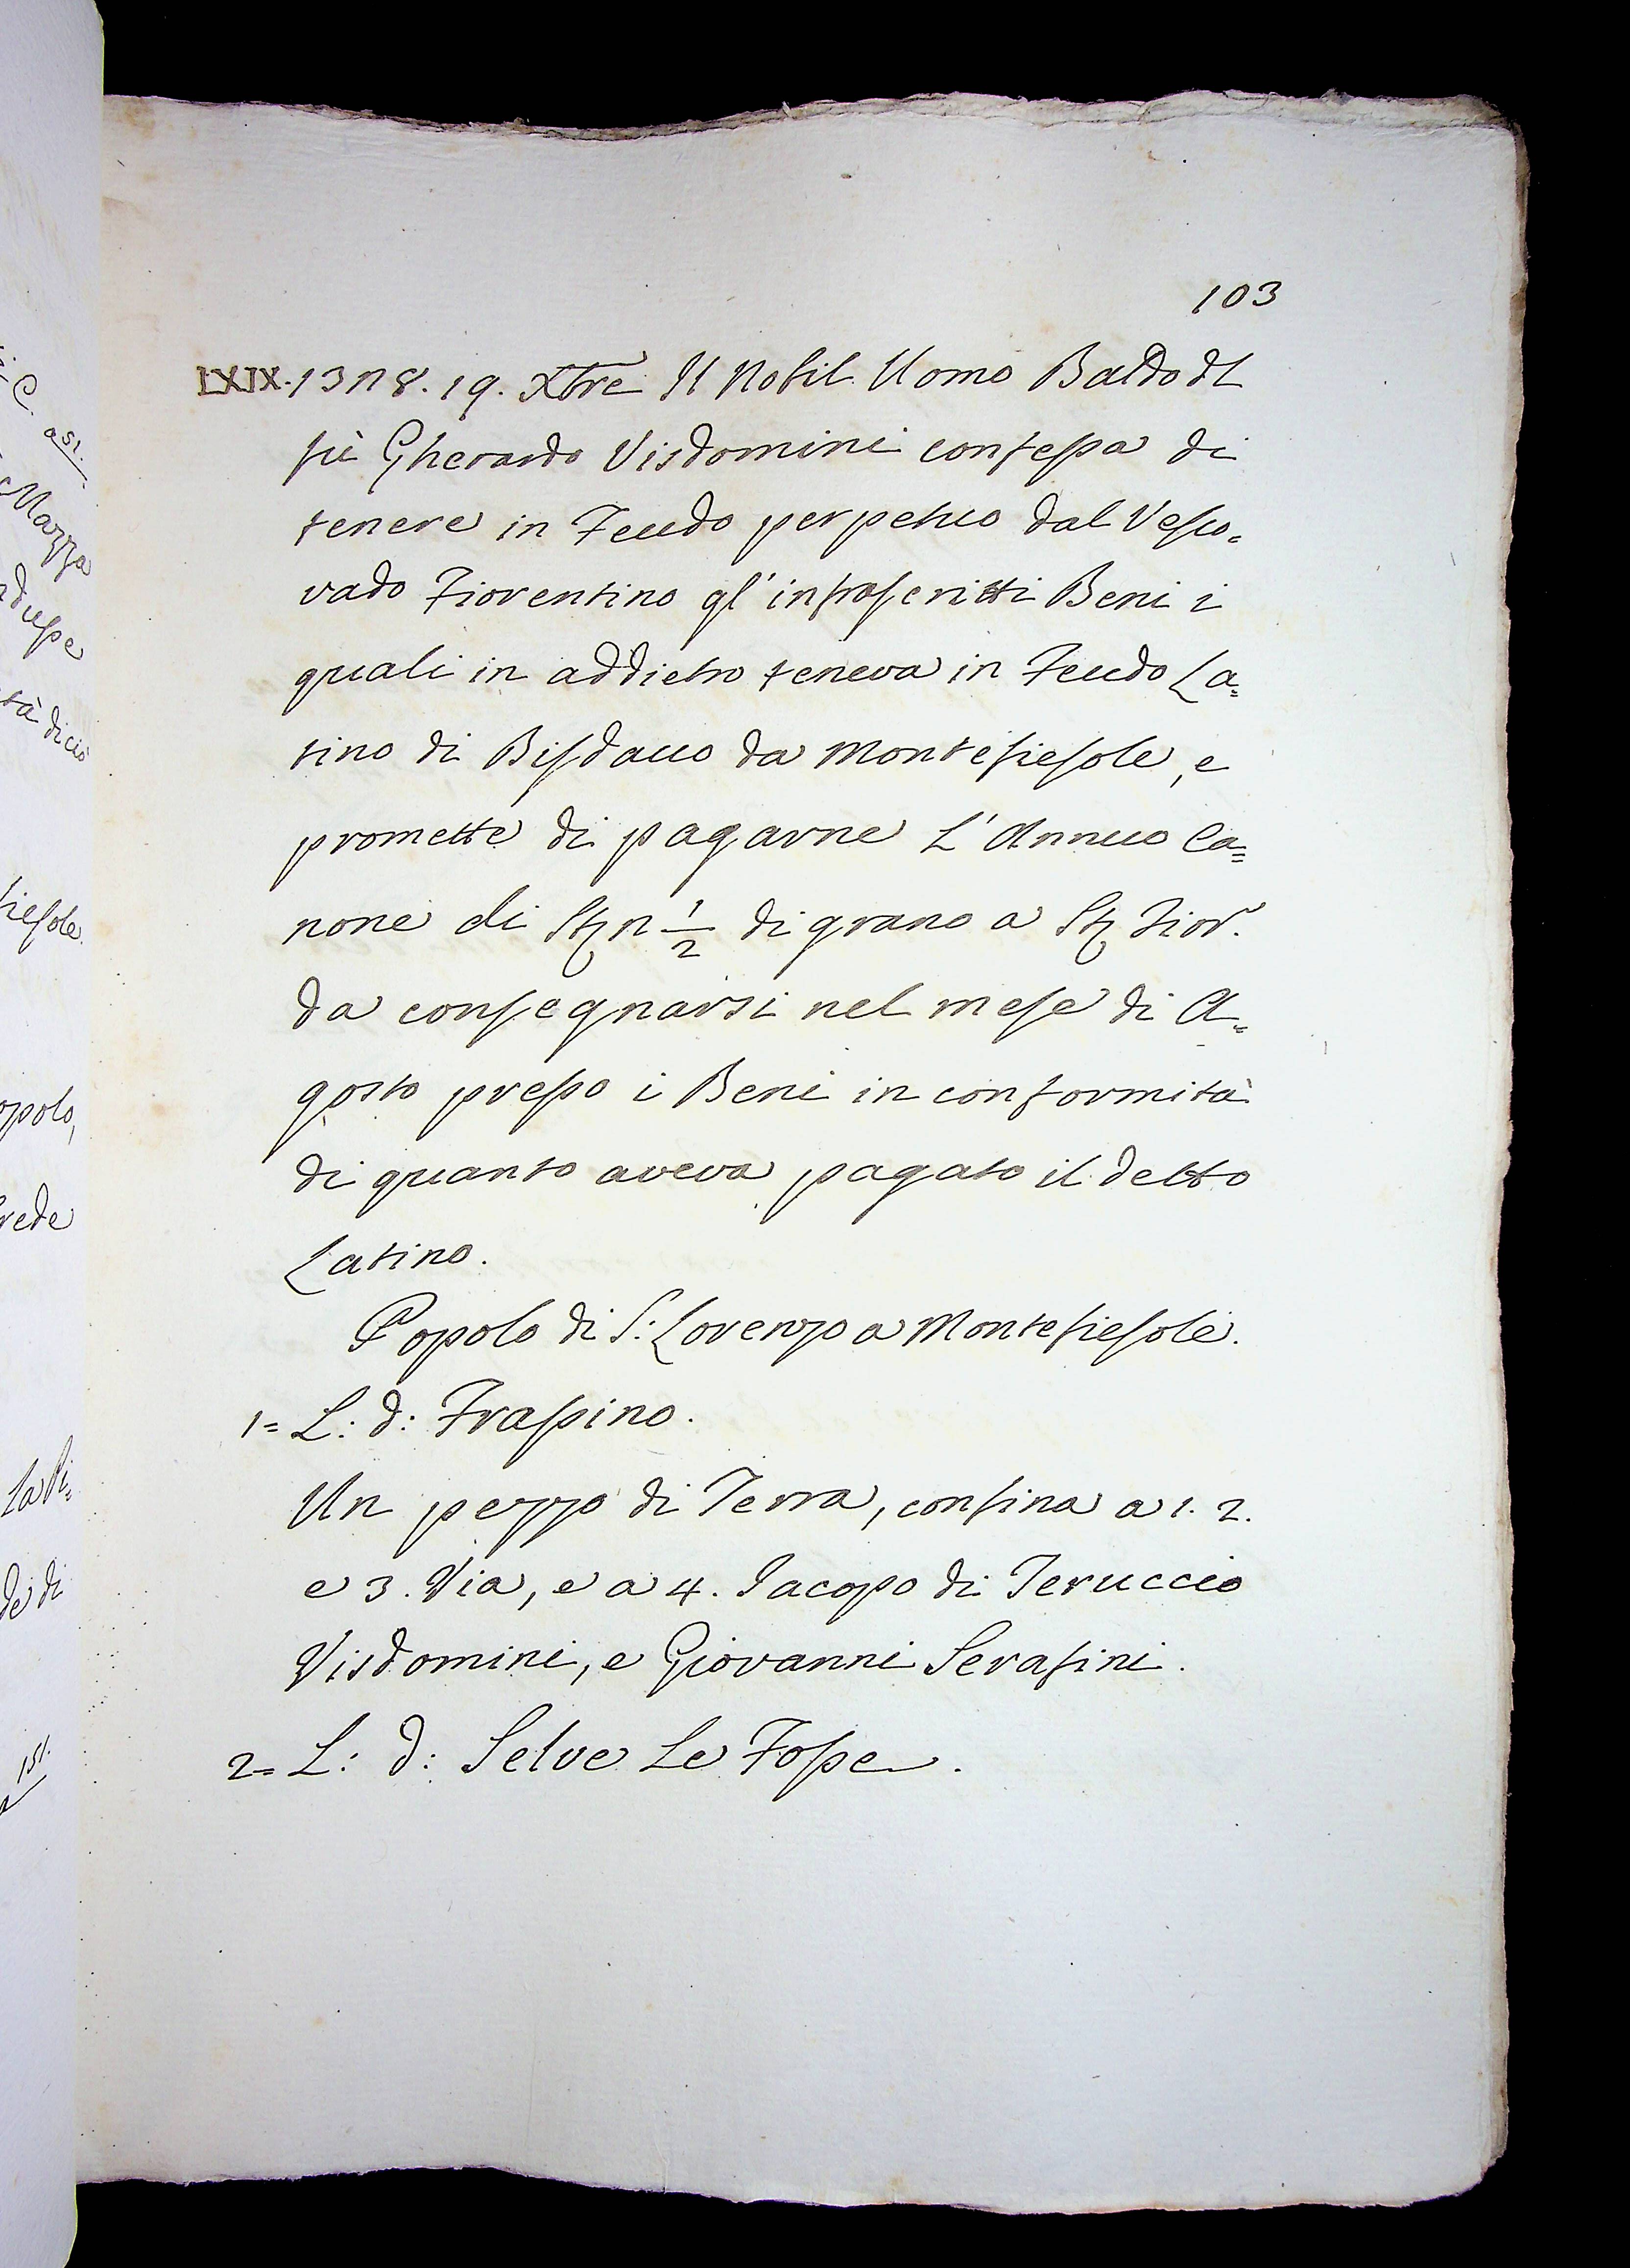 103
LXIX. 1378. 19. Xbre Il Nobil Uomo Baldo dl
fù Gherardo Visdomini confessa di
tenere in Feudo perpetuo dal Vesco=
vado Fiorentino gl'infrascritti Beni i
quali in addietro teneva in Feudo La=
tino di Bisdacco da Montefiesole, e
promette di pagarne L'Annuo Ca=
none di 7 1/2 di grano a Fior.
da consegnarsi nel mese di A=
gosto presso i Beni in conformità
di quanto aveva pagato il detto
Latino.
Popolo di S: Lorenzo a Montefiesole.
1= L: d: Frassino.
Un pezzo di Terra, confina a 1. 2.
e 3. Via, e a 4. Iacopo di Teruccio
Visdomini, e Giovanni Serafini.
2= L: d: Selve Le Fosse.